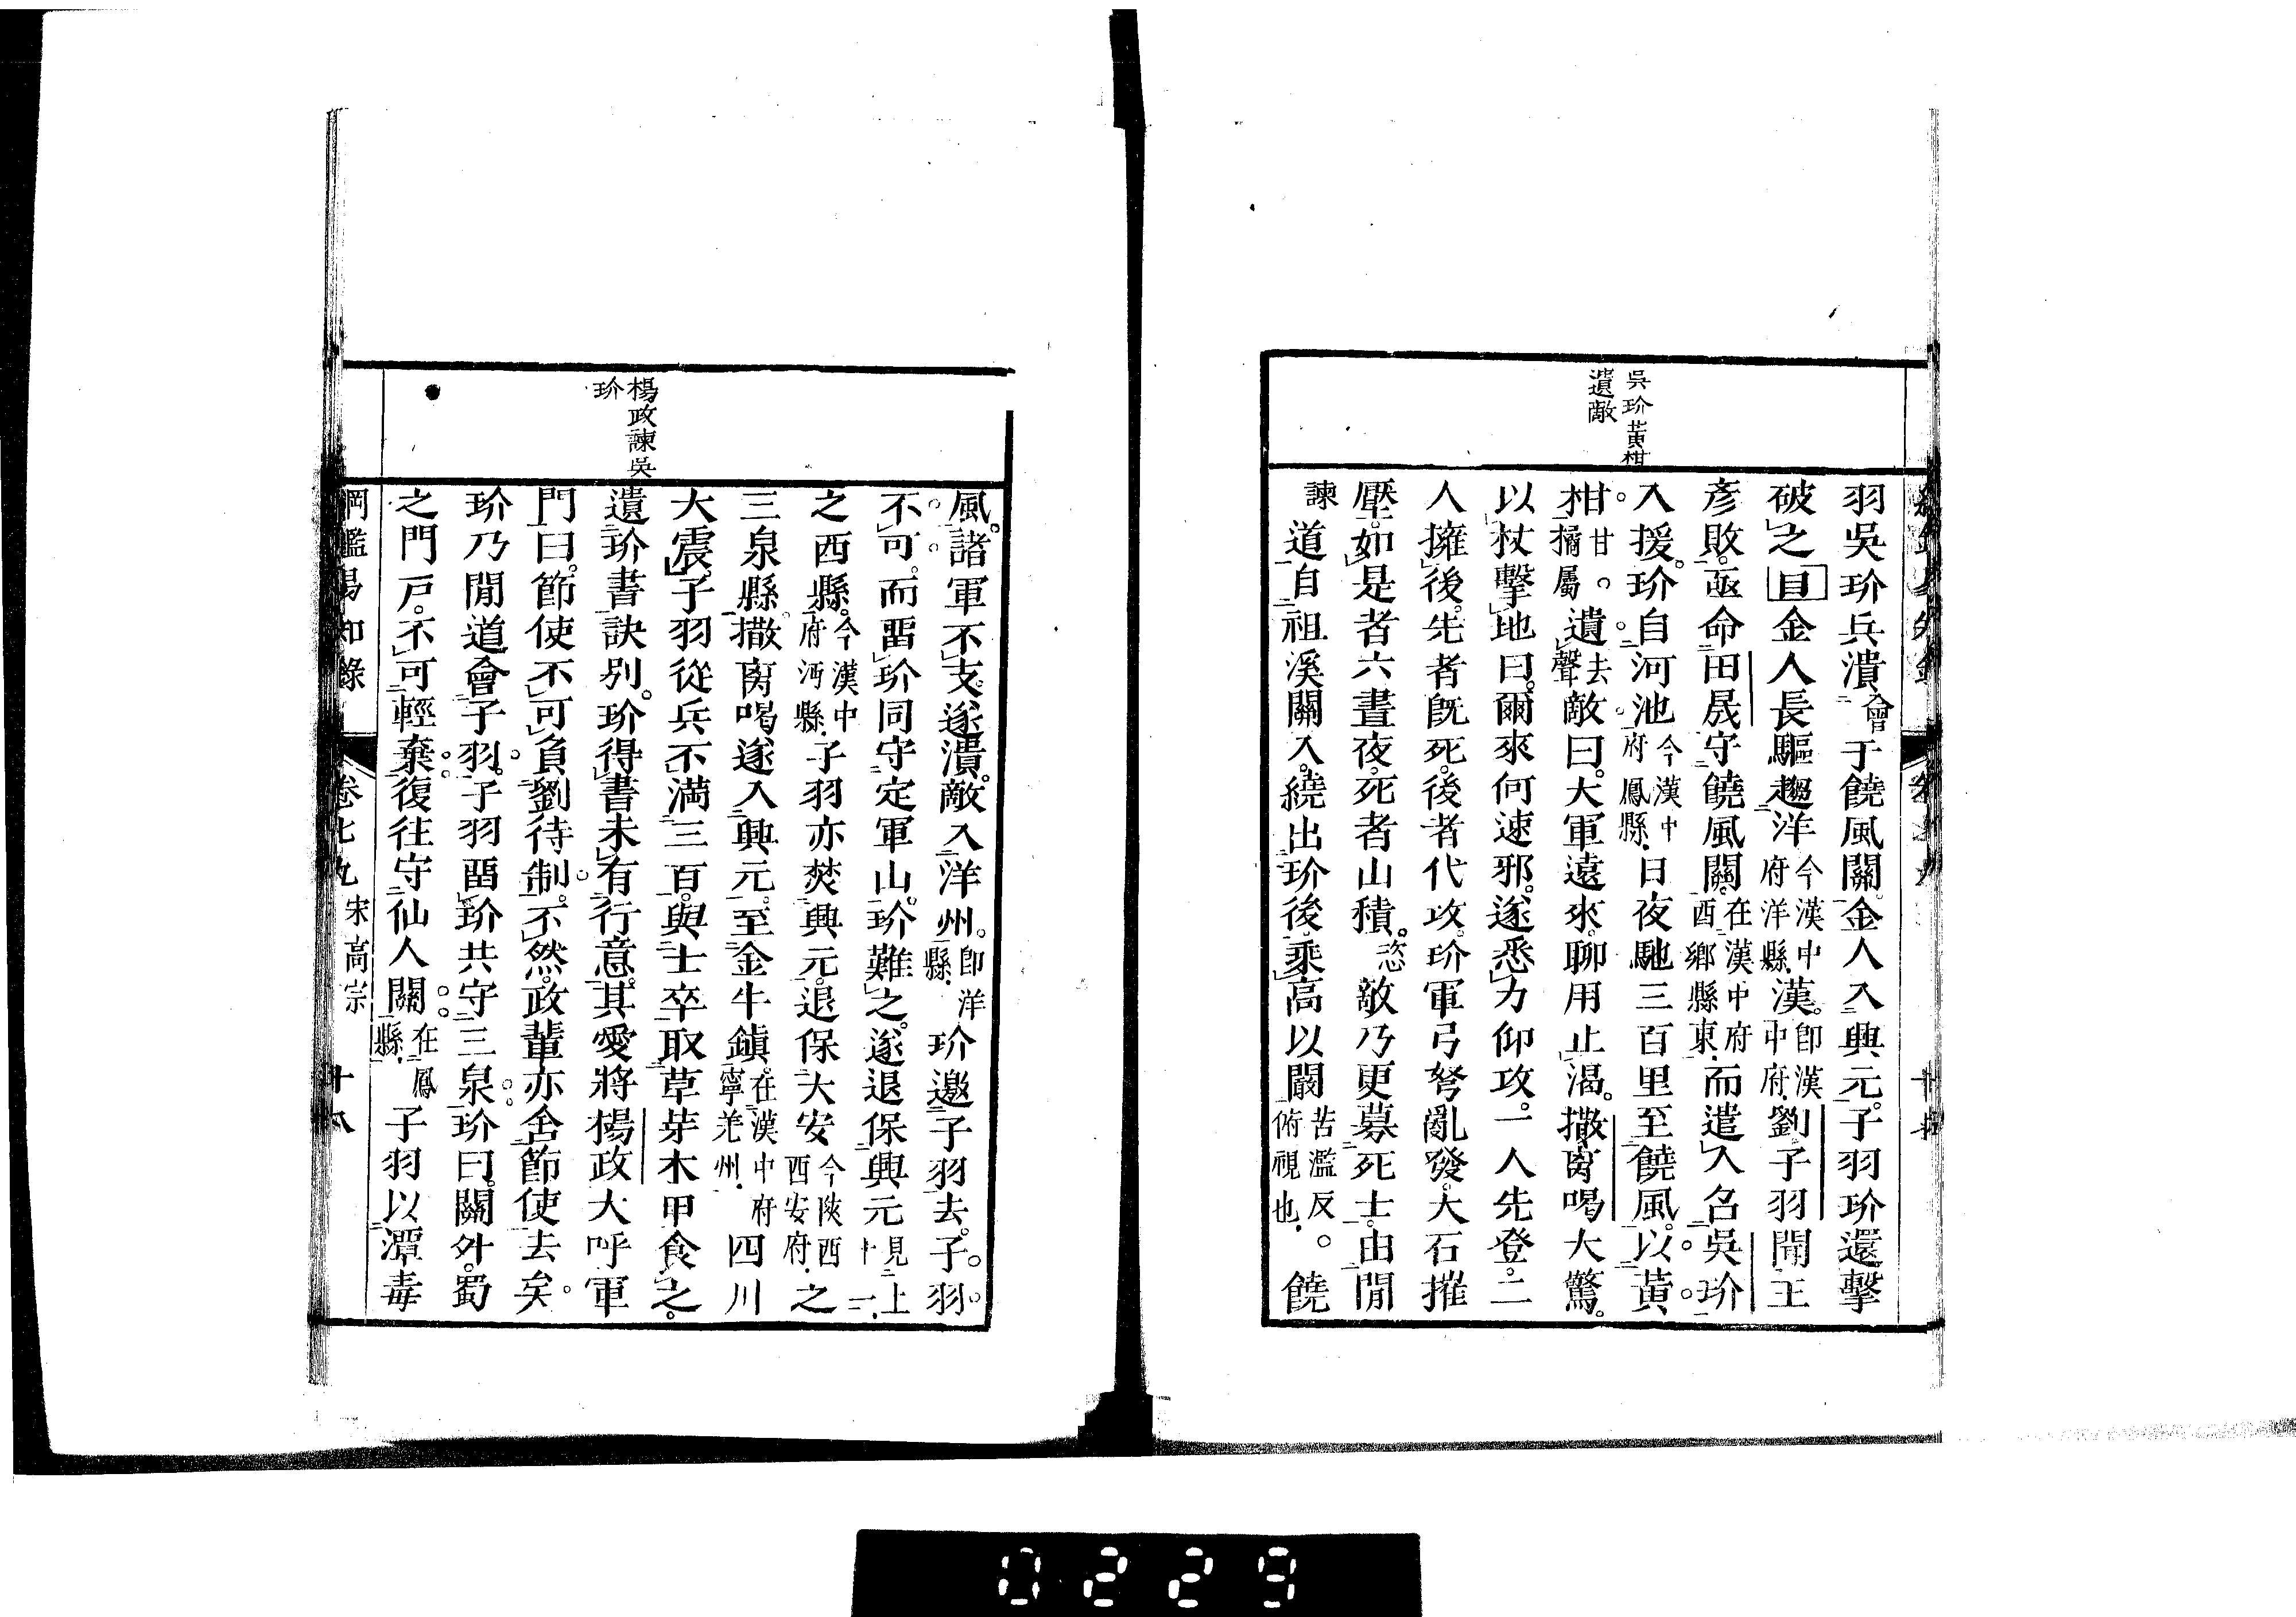 吳玠黃柑
遺敵
羽吳玠兵潰會于饒風關金人入興元子羽玠還擊
破之目金人長驅趨洋今漢中府洋縣漢卽漢中府劉子羽聞王
彥敗亟命田晟守饒風關在漢中府西鄉縣東而遣人召吳玠
入援玠自河池今漢中府鳳縣日夜馳三百里至饒風以黃
柑甘橘屬遺去聲敵曰大軍遠來聊用止渴撒离喝大驚
以杖擊地曰爾來何速邪遂悉力仰攻一人先登二
人擁後先者旣死後者代攻玠軍弓弩亂發大石摧
壓如是者六晝夜死者山積敵乃更募死士由閒
道自祖溪關入繞出玠後乘高以闞苦濫反俯視也饒
風諸軍不支遂潰敵入洋州卽洋縣玠邀子羽去子羽
不可而畱玠同守定軍山玠難之遂退保興元見上十一
之西縣今漢中府沔縣子羽亦焚興元退保大安今陝西西安府之
三泉縣撒离喝遂入興元至金牛鎭在漢中府寧羌州四川
大震子羽從兵不滿三百與士卒取草芽木甲食之
遺玠書訣別玠得書未有行意其愛將楊政大呼軍
門曰節使不可負劉待制不然政輩亦舍節使去矣
玠乃閒道會子羽子羽畱玠共守三泉玠曰關外蜀
之門戸不可輕棄復往守仙人關在鳳縣子羽以潭毒
楊政諫吳
玠
綱鑑易知錄 卷七九 宋高宗 十八
0229